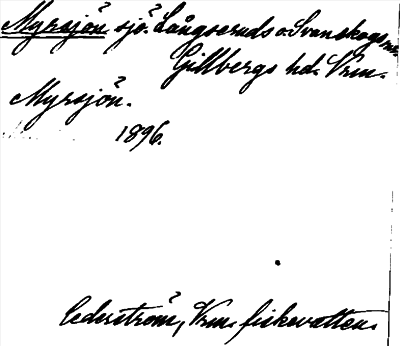 Myrsjön sjö. Långseruds o. Svanskogs snr.
Gillbergs hd. Vrm.
Myrsjön.
1896.
Cederström, Vrm. fiskevatten.